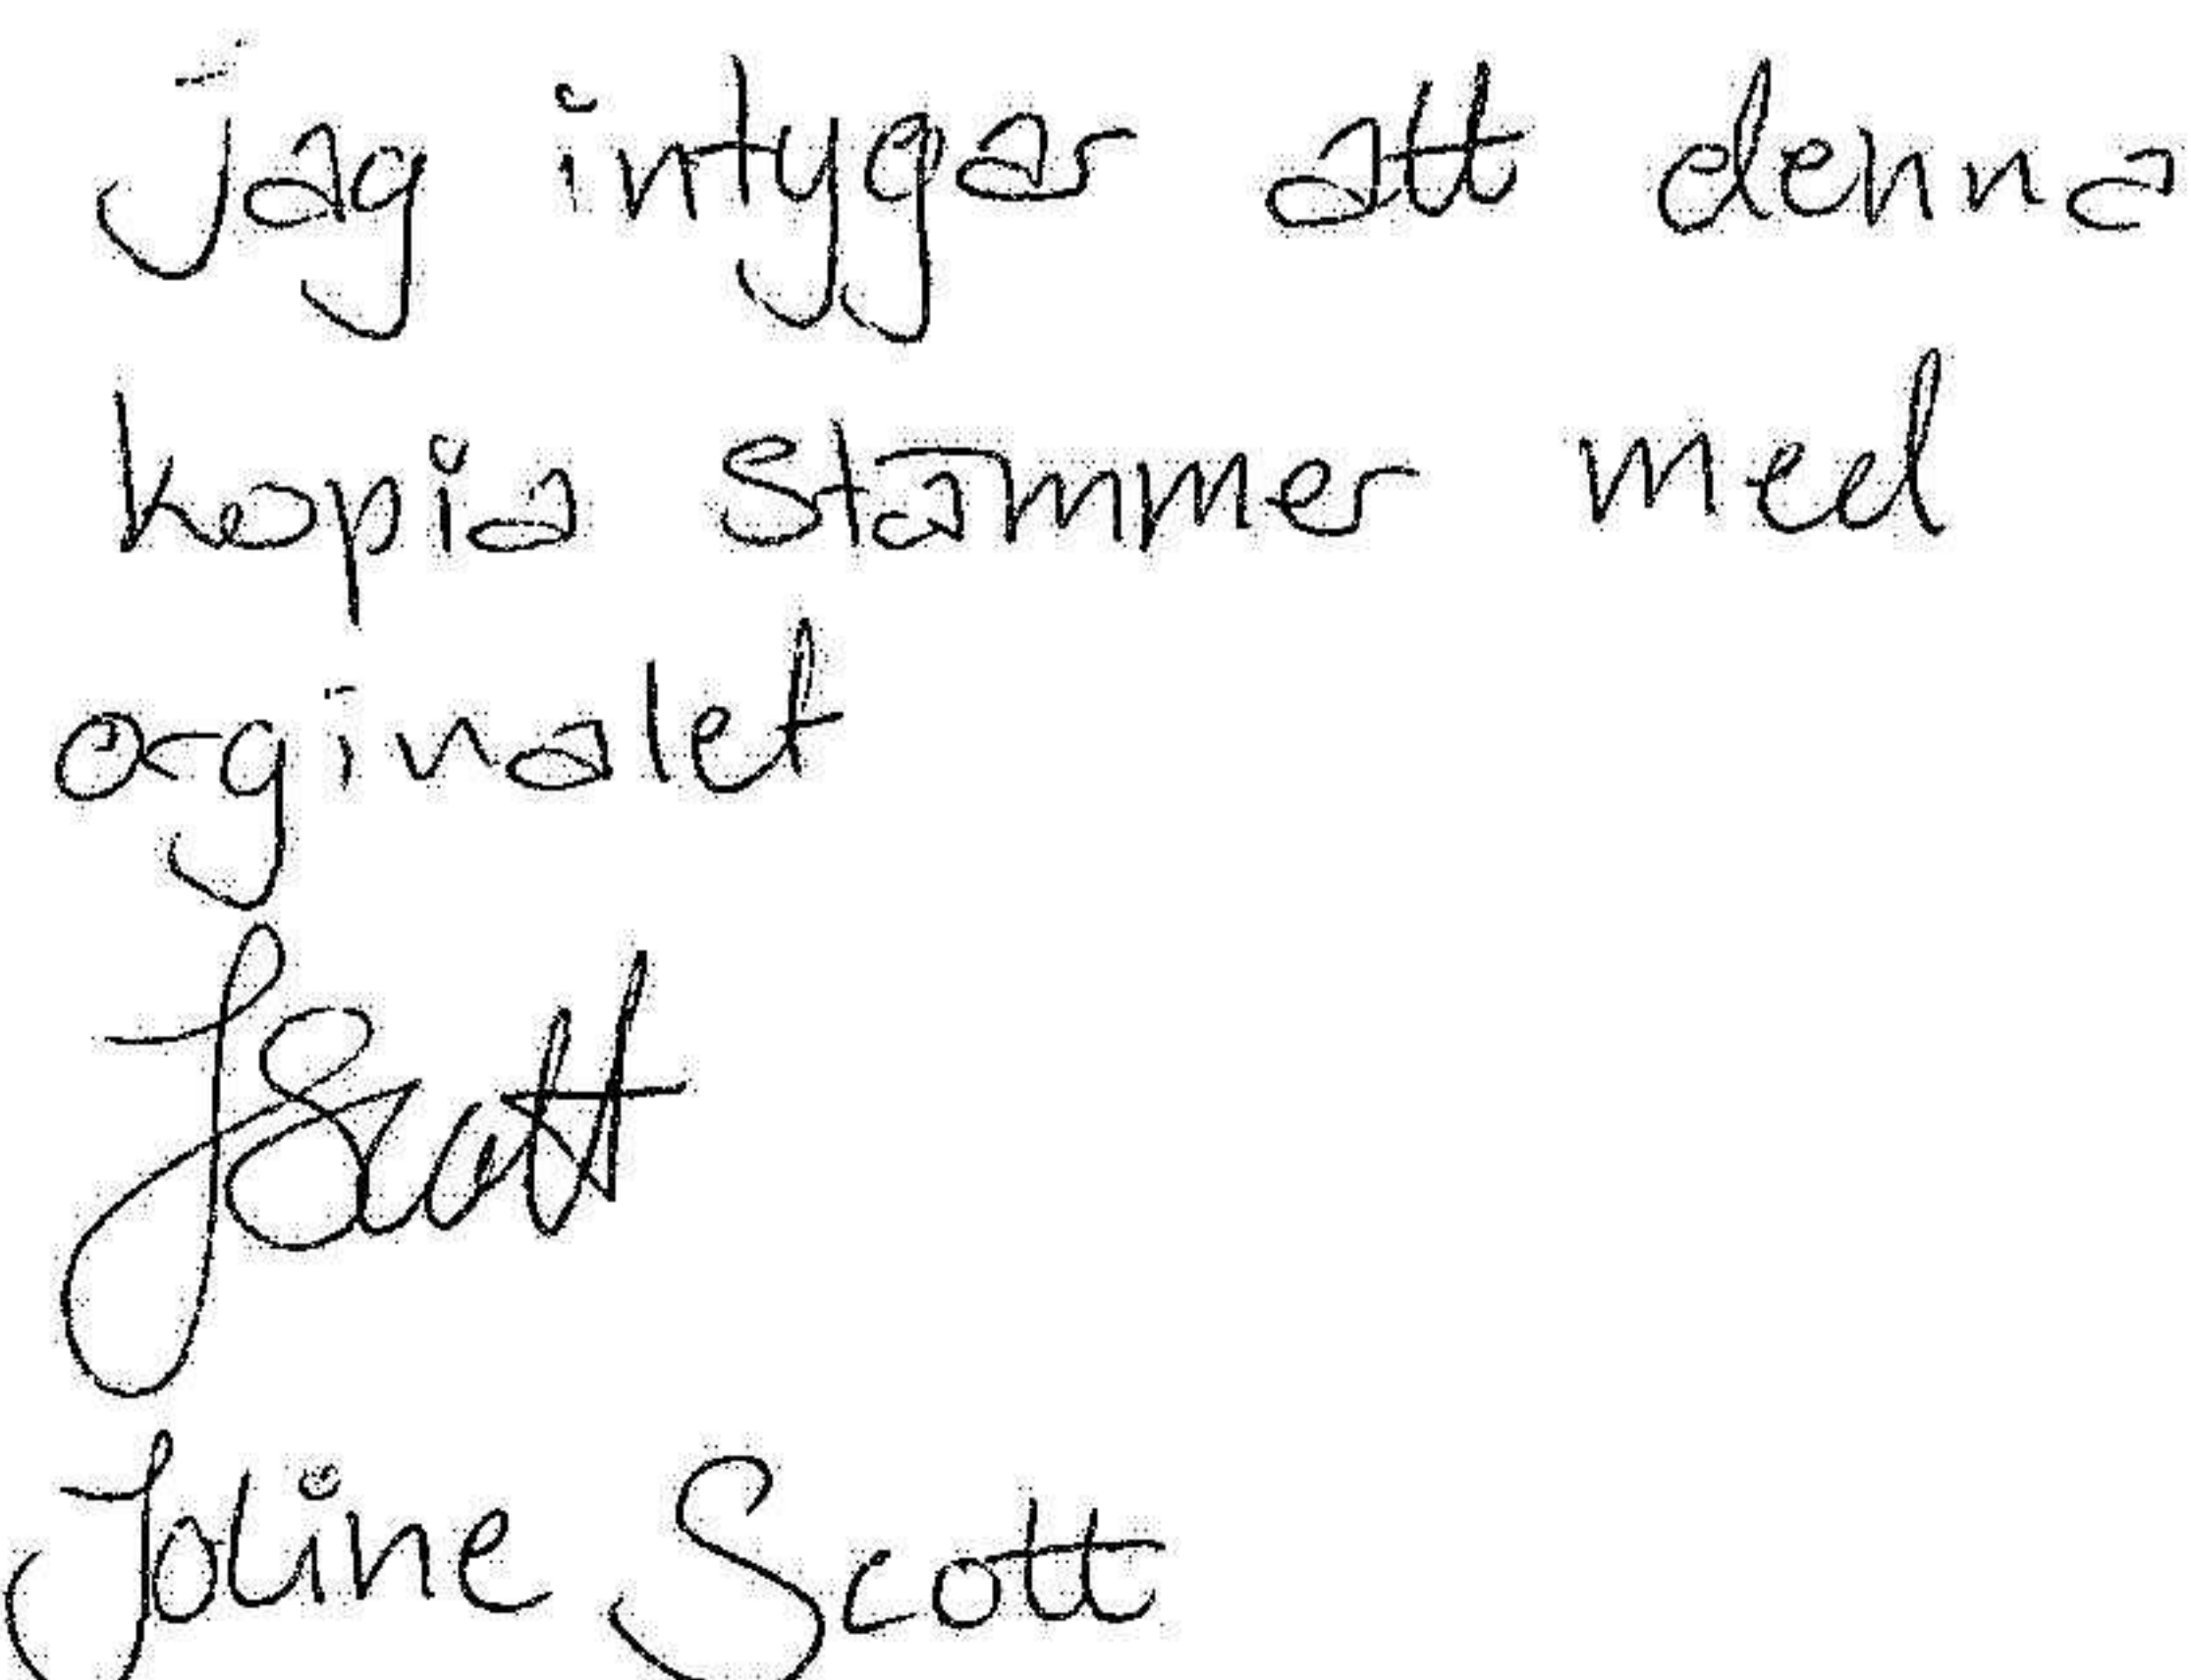 jag intygar att denna
kopia stämmer med
orginalet
JScott
Joline Scott